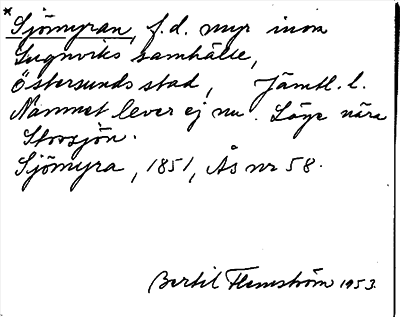 * Sjömyran, f.d. myr inom
Lugnviks samhälle,
Östersunds stad, Jämtl. l.
Namnet lever ej nu. Läge nära
Storsjön.
Sjömyra, 1851, Ås nr 58.
Bertil Flemström 1953.